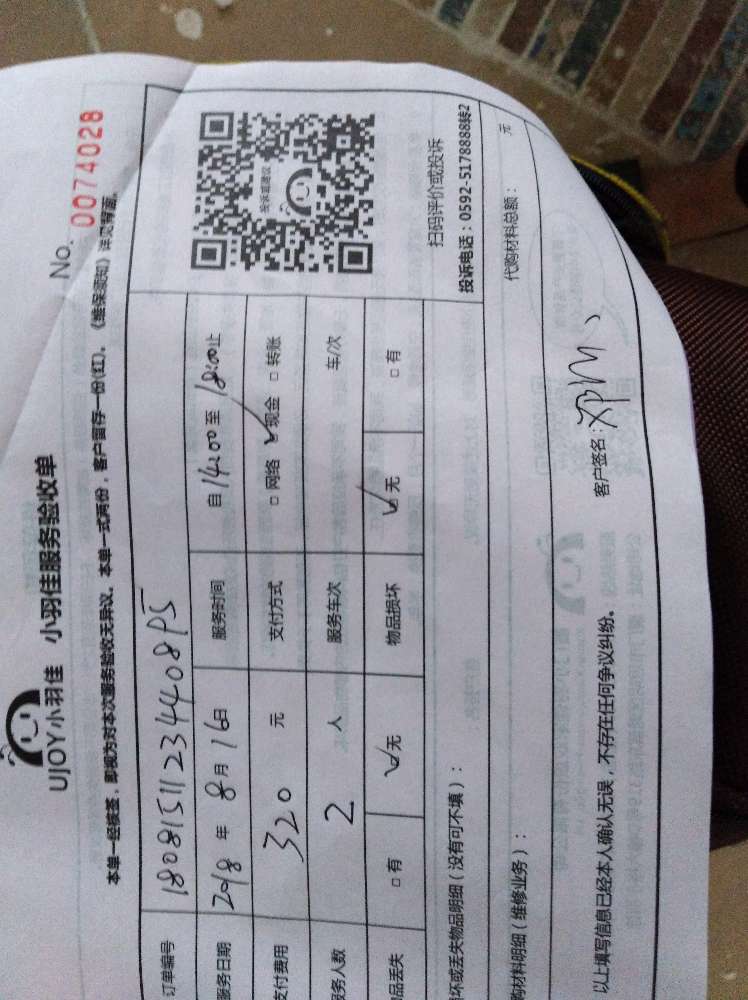 UJOY小羽佳 小羽佳服务验收单
No. 0074028
本单一经核签，即视为对本次服务验收无异议。本单一式两份，客户留存一份(红)。《维保须知》详见背面。
订单编号 180815112344408P5
服务日期 2018 年 8 月 16 日 服务时间 自 14:00 至 18:00 止
支付费用 320 元 支付方式 □ 网络 ☑ 现金 □ 转账
服务人数 2 人 服务车次 车/次
品丢失 □ 有 ☑ 无 物品损坏 ☑ 无 □ 有
投诉或建议
扫码评价或投诉
投诉电话：0592-5178888转2
坏或丢失物品明细（没有可不填）：
购材料明细（维修业务）： 代购材料总额： 元
以上填写信息已经本人确认无误，不存在任何争议纠纷。 客户签名：